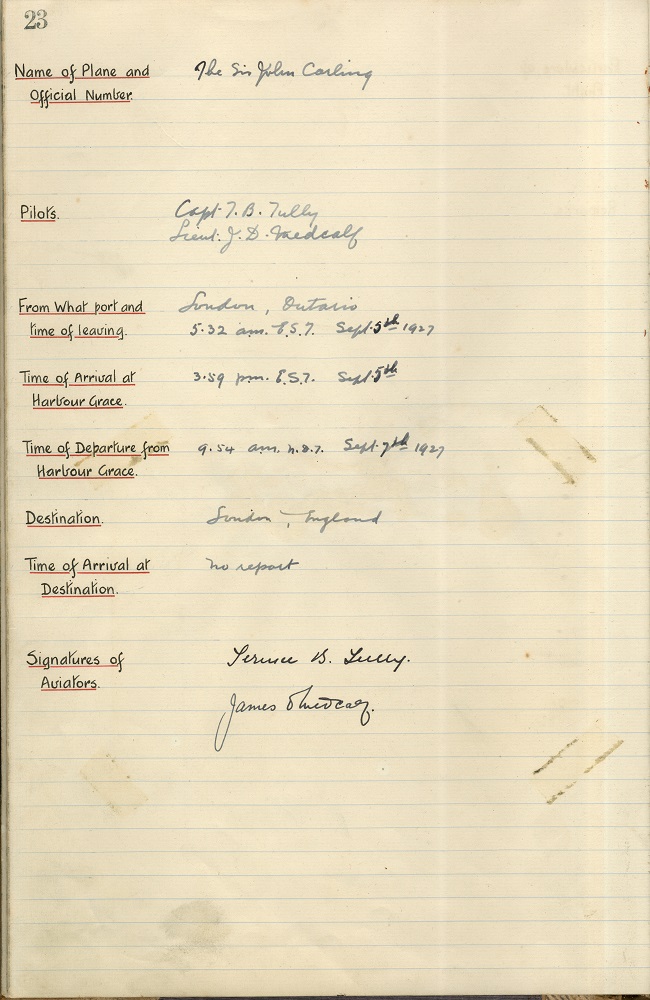 23
Name of Plane and The Sir John Carling
Official Number.
Pilots. Capt T. B. Tully
Lieut. J. D. Medcalf
From What port and London, Ontario
time of leaving. 5.32 am. E.S.T. Sept. 5th 1927
Time of Arrival at 3.59 pm. E.S.T. Sept. 5th
Harbour Grace.
Time of Departure from 9.54 am. N.D.T. Sept. 7th 1927
Harbour Grace.
Destination. London, England
Time of Arrival at No report
Destination.
Signatures of Terence B. Tully.
Aviators.
James Medcalf.